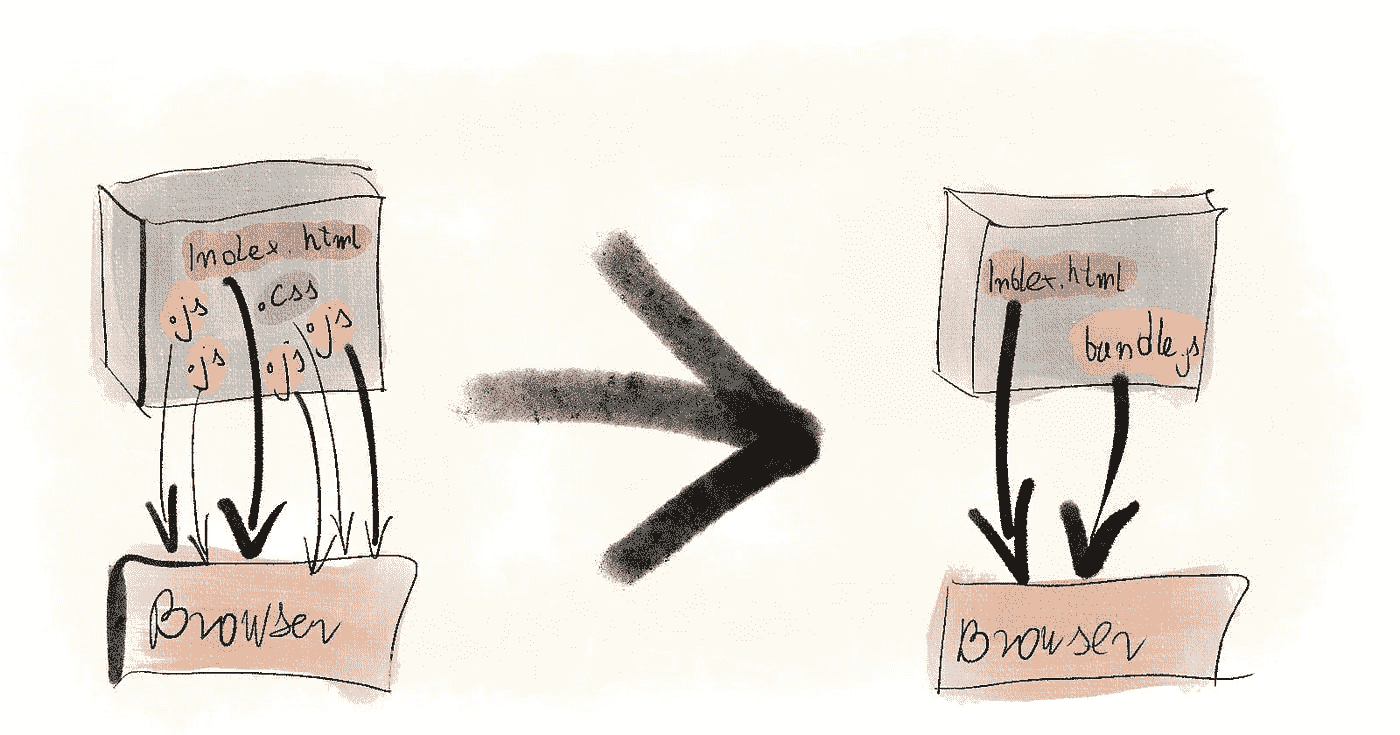 Index.html
.css
.js
.js
.js
.js
Browser
Index.html
bundle.js
Browser